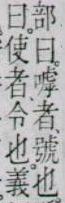 部曰。嘑者、號也
曰。使者、令也。義